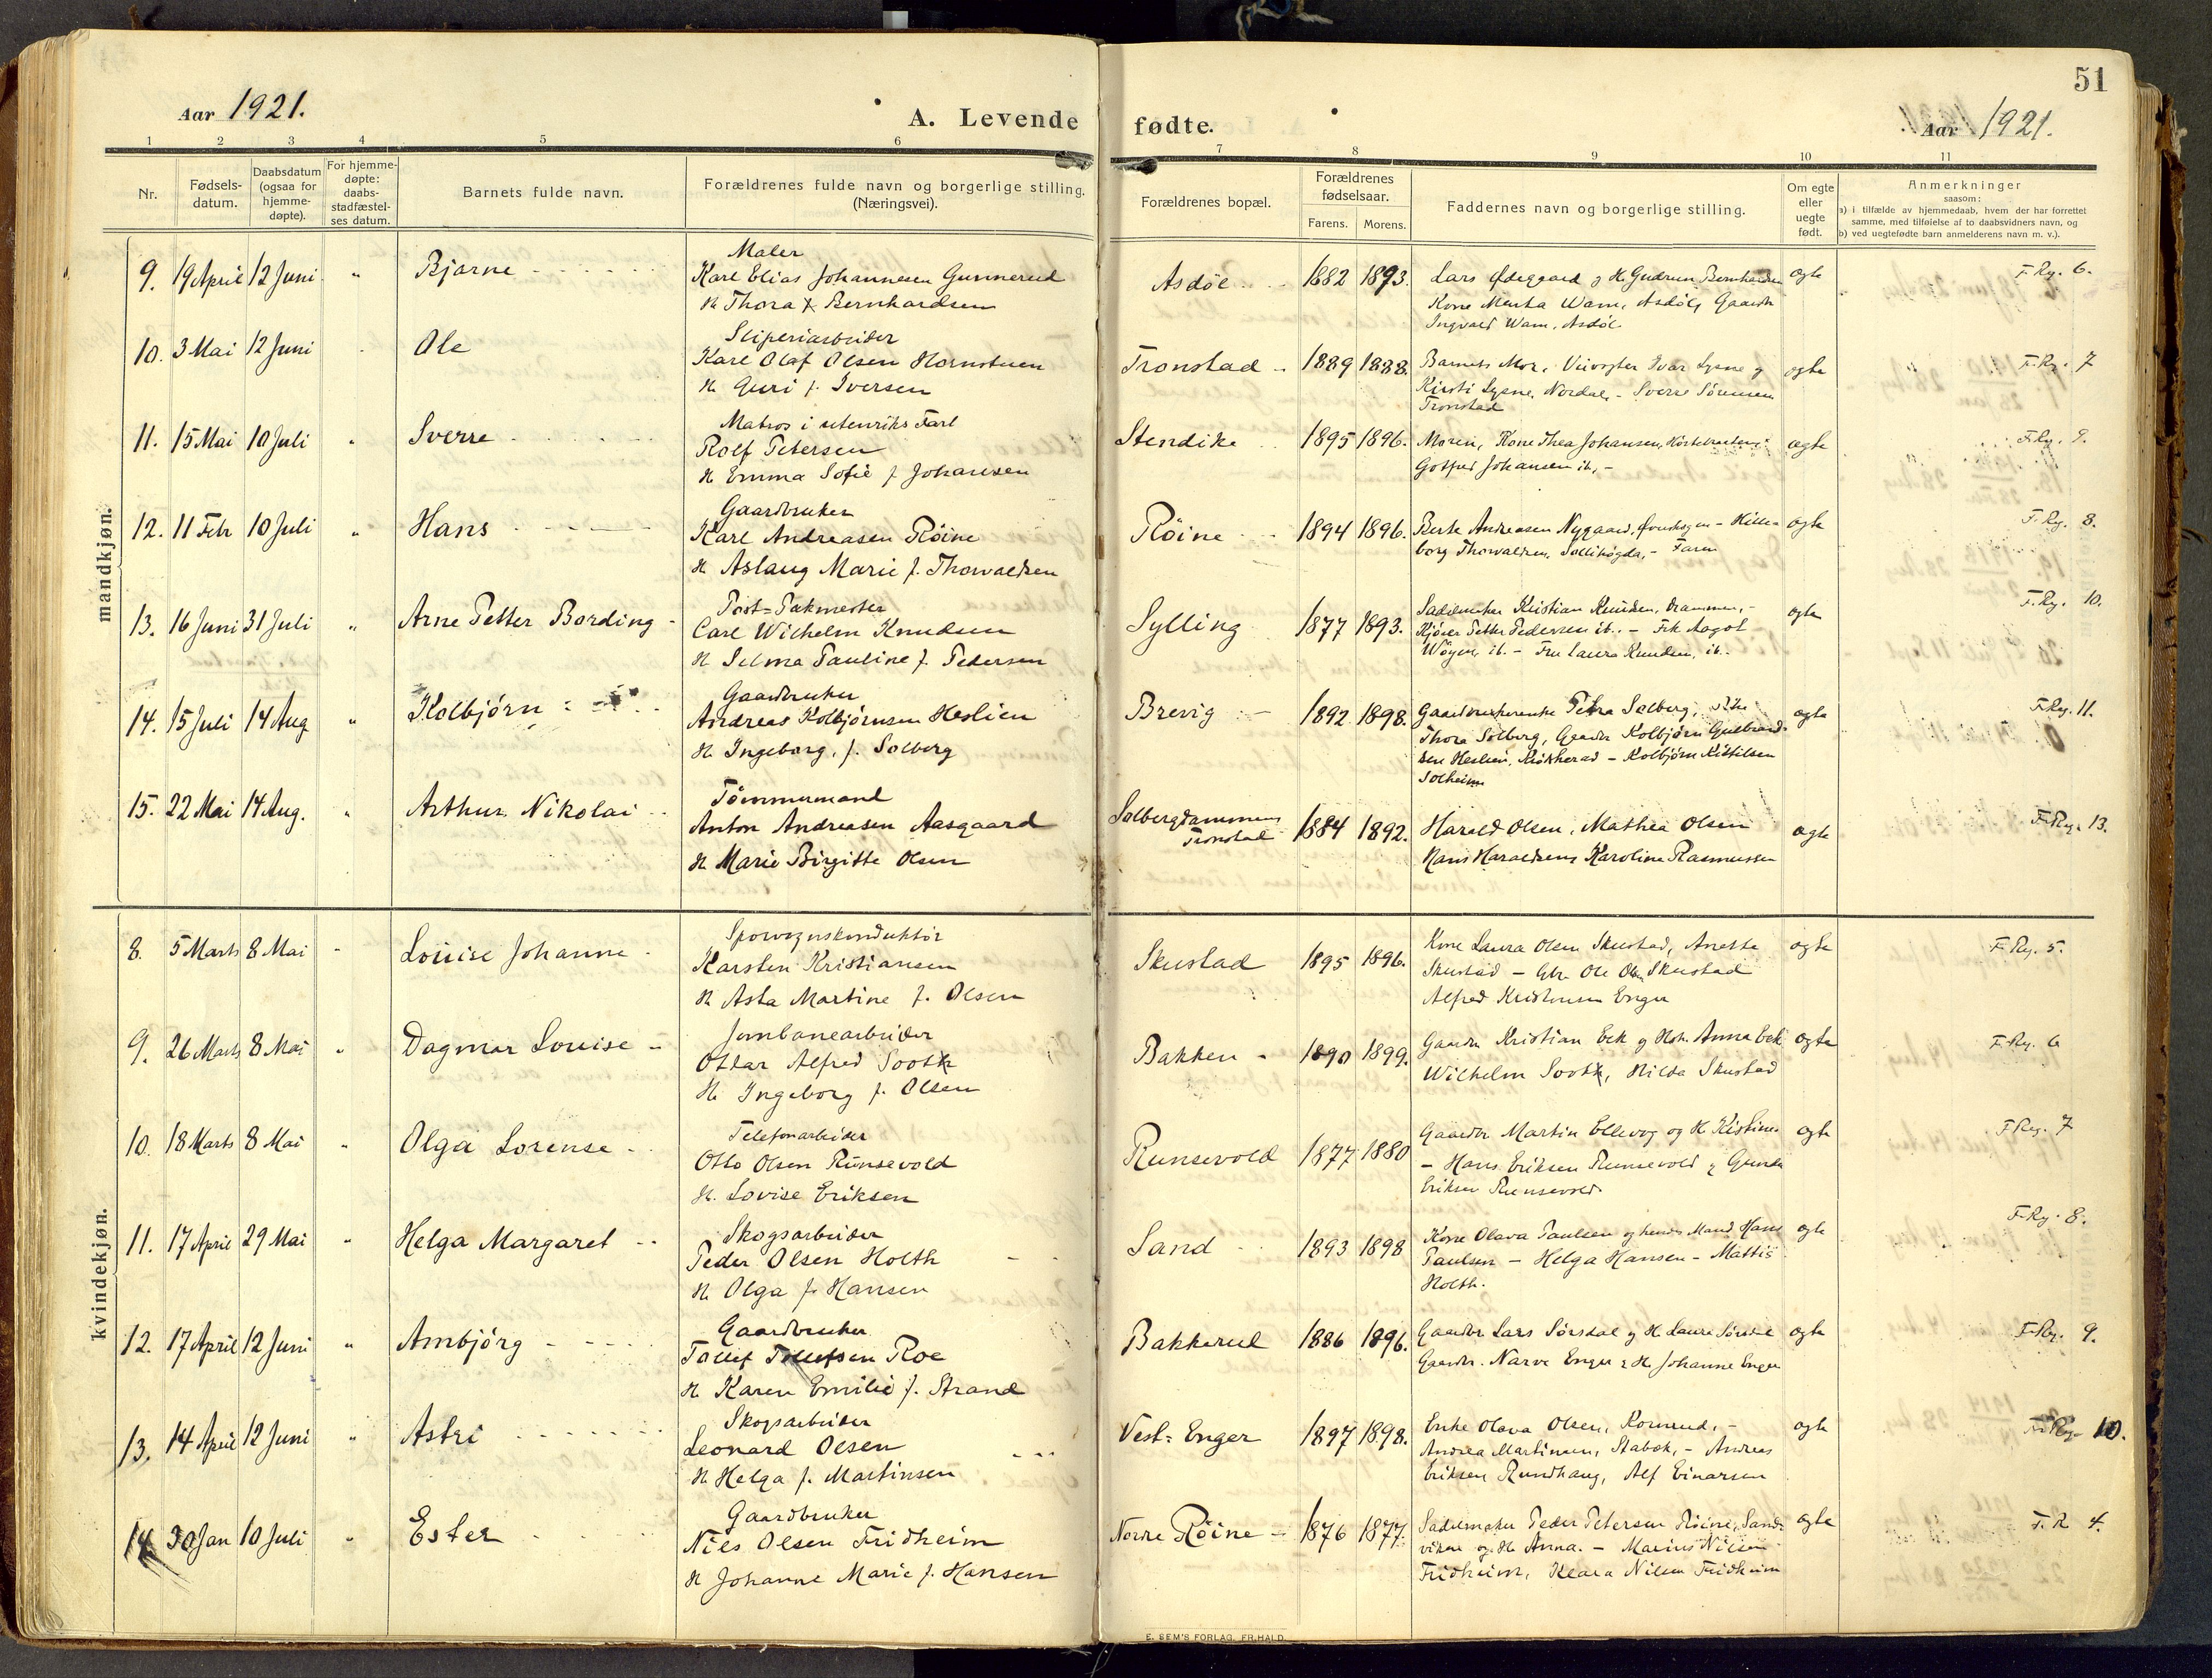 51
Aar 1921.
A. Levende fødte.
Aar 1921.
1 2 3 4 5 6 7 8 9 10 11
Nr.
Fødsels-
datum.
Daabsdatum
(ogsaa for
hjemme-
døpte).
For hjemme-
døpte:
daabs-
stadfæstel-
ses datum.
Barnets fulde navn.
Forældrenes fulde navn og borgerlige stilling.
(Næringsvei).
Forældrenes bopæl.
Forældrenes
fødselsaar.
Farens. Morens.
Faddernes navn og borgerlige stilling.
Om egte
eller
uegte
født.
Anmerkninger
saasom:
a) i tilfælde av hjemmedaab, hvem der har forrettet
samme, med tilføielse af to daabsvidners navn, og
b) ved uegtefødte barn anmelderens navn m. v.).
mandkjøn.
9. 19 April 12 Juni " Bjarne
Maler
Karl Elias Johannesen Gunnerud
H. Thora f. Bernhardsen
Asdøl 1882 1893.
Lars Ødegaard og H. Gudrun Bernhardsen
Kone Marta Wam, Asdøl, Gaardbr
Ingvald Wam, Asdøl
egte F. Rg. 6.
10. 3 Mai 12 Juni Ole
Sliperiarbeider
Karl Olaf Olsen Hornstuen
H. Guri f. Iversen
Tronstad 1889 1888.
Barnets Mor, Veivogter Ivar Lysne og
Kirsti Lysne, Nordal, - Sverre Sørensen
Tronstad
egte F. Rg. 7
11. 15 Mai 10 Juli " Sverre
Matros i utenriks Fart
Rolf Petersen
H. Emma Sofie f. Johansen
Stendike 1895 1896.
Moren, Kone Thea Johansen,
Gotfred Johansen ib. -
egte F. Rg. 9.
12. 11 Febr 10 Juli " Hans
Gaardbruker
Karl Andreasen Röine
H. Aslaug Marie f. Thorvaldsen
Röine 1894 1896.
Berte Andreasen Nygaard, - Hille-
borg Thorvaldsen, Sollihøgda, - Faren
egte F. Rg. 8.
13. 16 Juni 31 Juli " Arne Petter Bording
Post-Pakmester
Carl Wilhelm Knudsen
H. Selma Pauline f. Pedersen
Sylling 1877 1893.
Sadelmaker Kristian Knudsen, Drammen, -
Kjører Petter Pedersen ib. - Frk Aagot
Wøyen, ib. - Fru Laura Knudsen, ib.
egte F. Rg. 10.
14. 15 Juli 14 Aug " Kolbjörn
Gaardbruker
Andreas Kolbjørnsen Heslien
H. Ingeborg, f. Solberg
Brevig 1892 1898.
Gaardbrukerenke Petra Solberg, Pike
Thora Solberg, Gaardbr Kolbjørn Gulbrand-
sen Heslien, Krødsherad - Kolbjørn Kittilsen
Solheim
egte F. Rg. 11.
15. 22 Mai 14 Aug. " Arthur Nikolai
Tömmermand
Anton Andreasen Aasgaard
H Marie Birgitte Olsen
Solbergdammen
Tronstad 1884 1892.
Harald Olsen, Mathea Olsen
Hans Haraldsen, Karoline Rasmussen
egte F. Rg. 13.
kvindekjøn.
8. 5 Marts 8 Mai Louise Johanne
Sporvognskonduktör
Karsten Kristiansen
H Asta Martine f. Olsen
Skustad 1895 1896.
Kone Laura Olsen Skustad, Anette
Skustad - Gbr. Ole Olsen Skustad
Alfred Kristensen Enger
egte F. Rg. 5.
9. 26 Marts 8 Mai " Dagmar Louise
Jernbanearbeider
Ottar Alfred Sootk
H. Ingeborg f. Olsen
Bakken 1890 1899.
Gaardbr Kristian Eek og Hst. Anna Eek
Wilhelm Sootk, Hilda Skustad
egte F. Rg. 6
10. 18 Marts 8 Mai " Olga Lorense
Telefonarbeider
Otto Olsen Runsevold
H. Lovise Eriksen
Runsevold 1877 1880
Gaardbr Martin Ellevog og H Kristine
- Hans Eriksen Runsevold og Gunda
Eriksen Runsevold.
egte F. Reg. 7
11. 17 April 29 Mai " Helga Margaret
Skogsarbeider
Peder Olsen Holth
H. Olga f. Hansen
Sand 1893 1898
Kone Olava Paulsen og hendes Mand Hans
Paulsen - Helga Hansen - Mattis
Holth.
egte F. Rg. 8.
12. 17 April 12 Juni " Ambjörg
Gaardbruker
Tollef Tollefsen Roe
H. Karen Emilie f. Strand
Bakkerud 1886 1896.
Gaardbr Lars Sørsdal og H. Laura Sørsdal
Gaardbr. Narve Enger & H. Johanne Enger
egte F. Rg. 9.
13. 14 April 12 Juni " Astri
Skogsarbeider
Leonard Olsen
H Helga f. Martinsen
Vest-Enger 1897 1898.
Enke Olava Olsen, Kornrud, -
Andrea Martinsen, Stabæk, - Andreas
Eriksen Rundhaug, Alf Einarsen
egte F. Rg. 10.
14 30 Jan 10 Juli " Ester
Gaardbruker
Nils Olsen Fridheim
H Johanne Marie f. Hansen
Nordre Röine 1876 1877.
Sadelmaker Peder Petersen Röine, Sand-
viken og H. Anna. - Marius Nilsen
Fridheim, Klara Nilsen Fridheim
egte F. R 4.
E. SEM'S FORLAG, FR.HALD